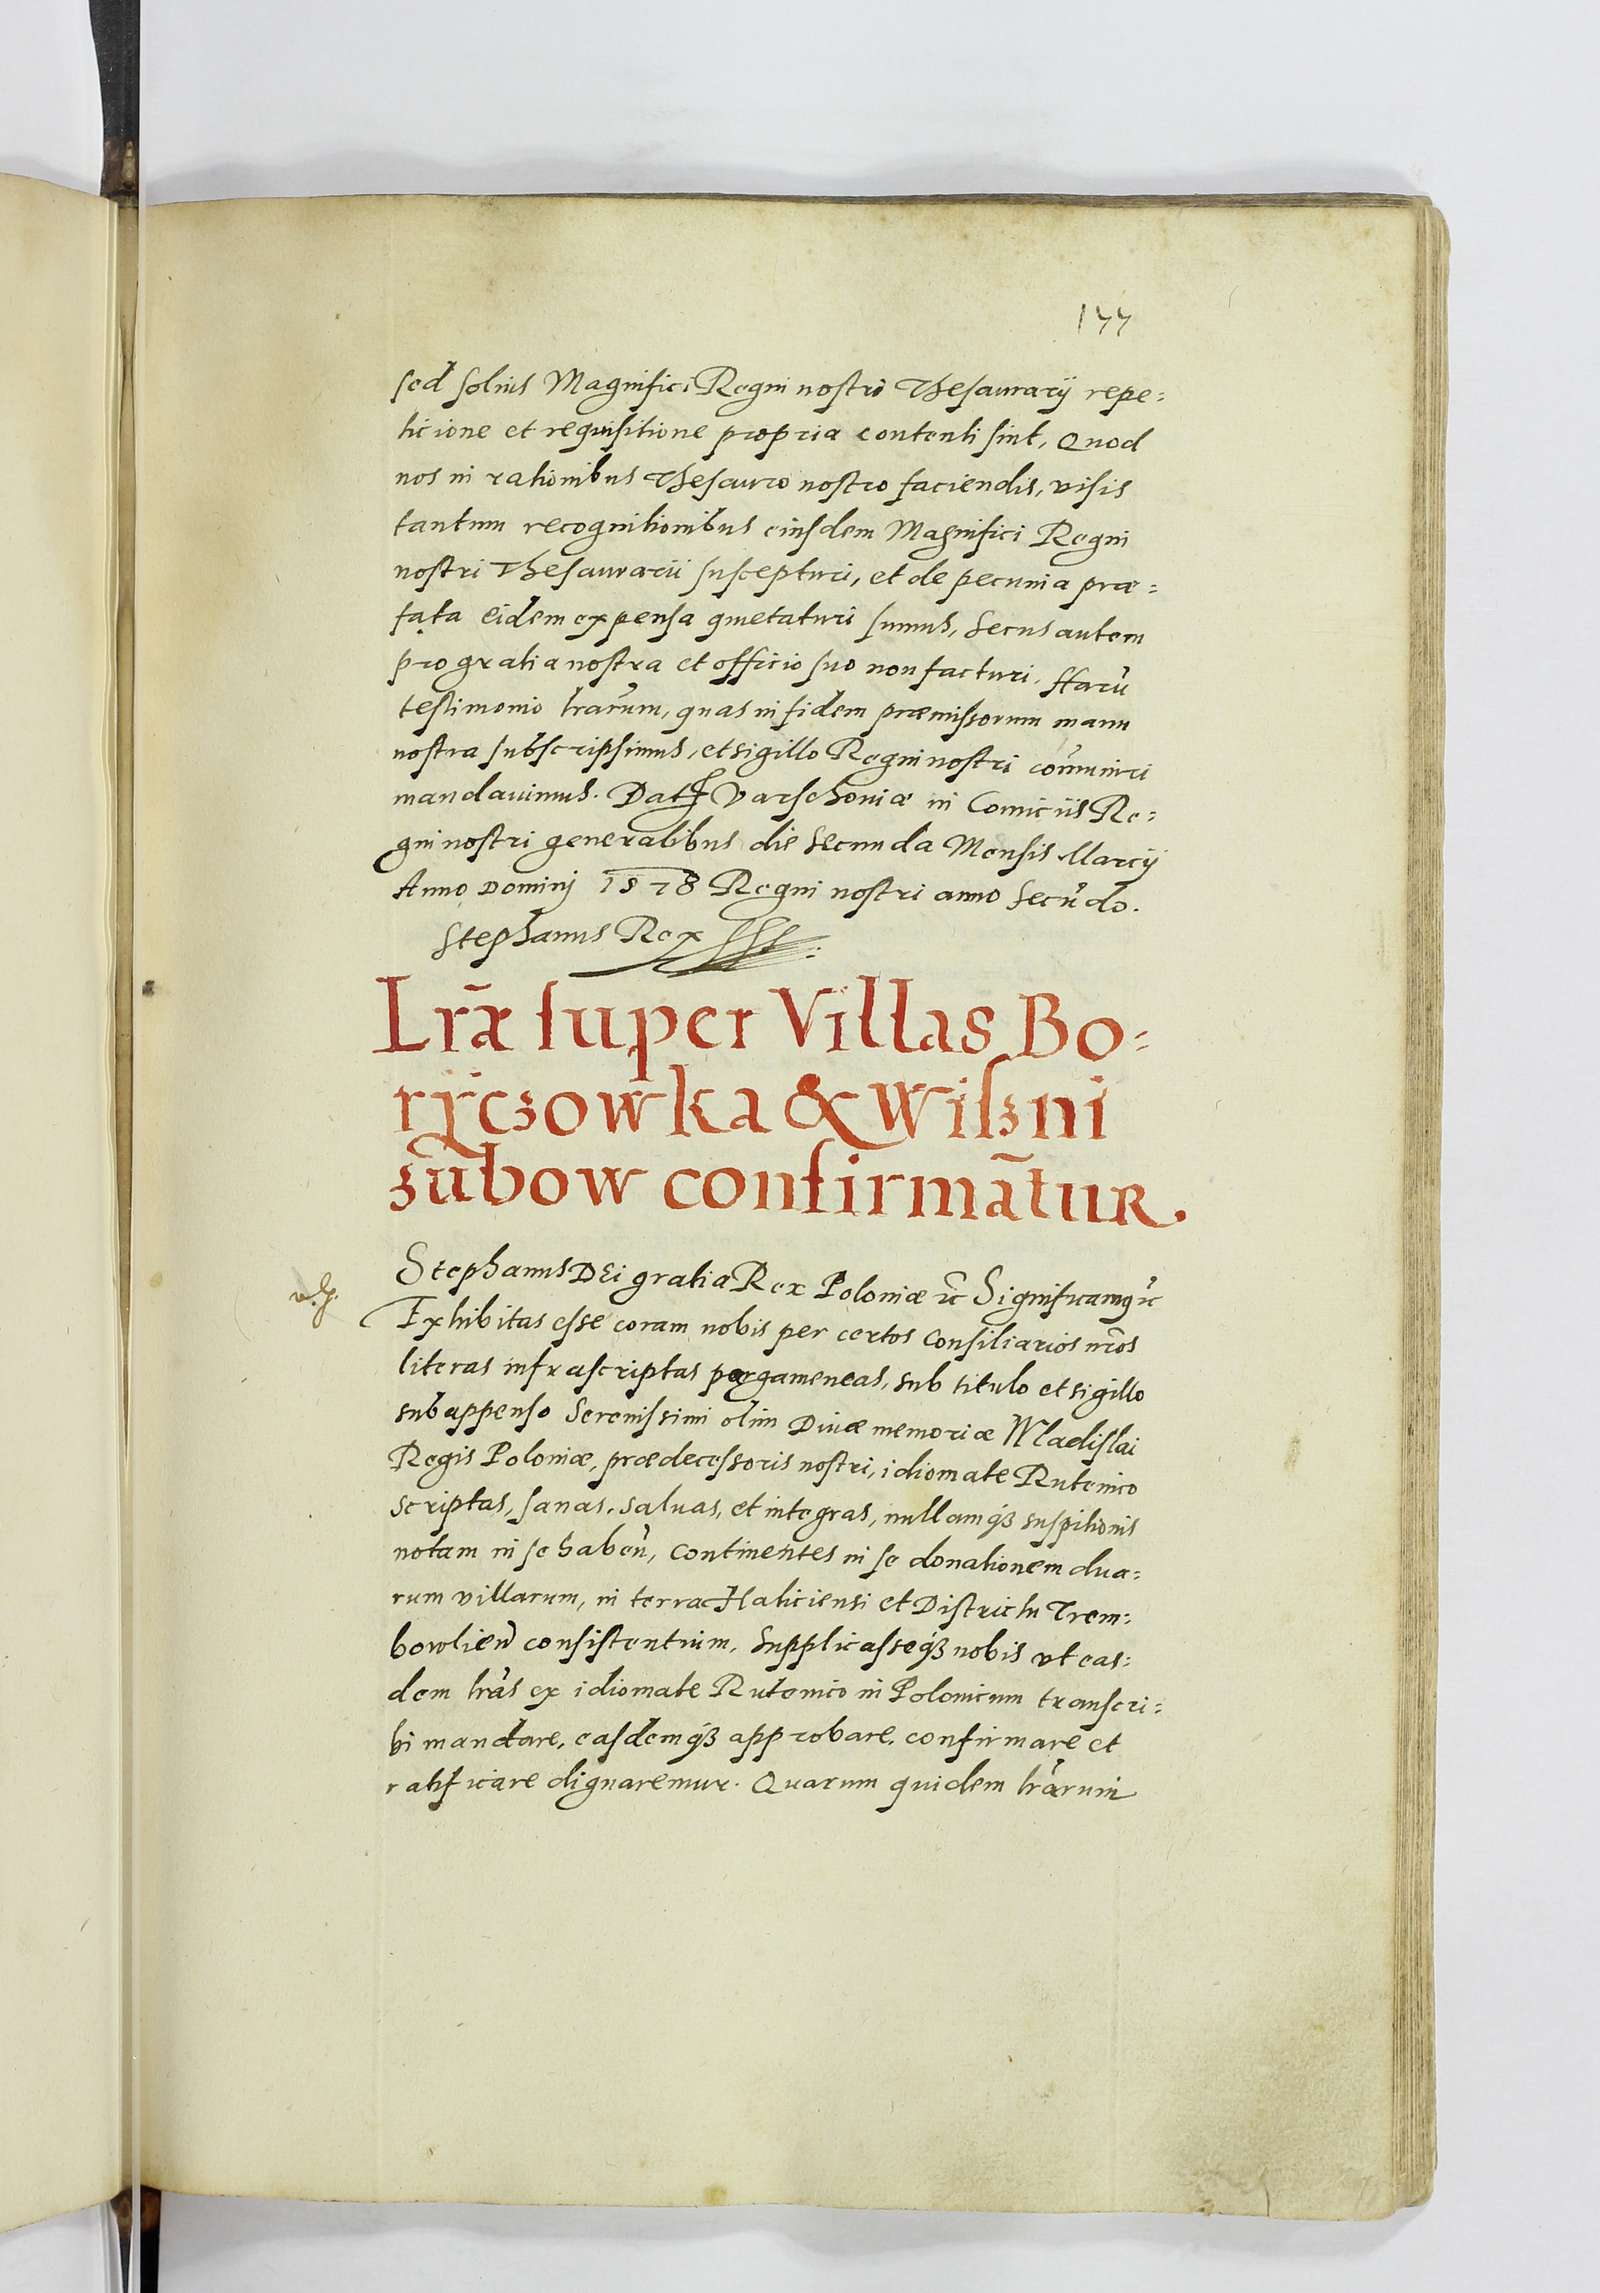 144
sed solius Magnifici Regni nostri Thesaurarij repe:
ticione et requisitione propria contenti sint, Quod
nos in rationibus Thesauro nostro faciendis, visis
tantum recognitionibus eiusdem Magnifici Regni
nostri Thesaurarii suscepturi, et de pecunia præ:
fata eidem expensa quietaturi sumus, Secus autem
pro gratia nostra et officio suo non facturi. Harū
testimonio lrārum, quas in fidem præmissorum manu
nostra subscripsimus, et sigillo Regni nostri cōmuniri
mandauimus. Dat Varschouiæ in Comiciis Re:
gni nostri generalibus die Secunda Mensis Marcij
Anno Dominj 1578 Regni nostri anno Secūdo.
Stephanus Rex
Lræ̃ super Villas Bo:
rÿczowka & Wiſzni
zūbow confirmātur.
Stephanus DEi gratia Rex Poloniæ ꝛc̄ Significamꝰ ꝛc̄
Exhibitas esse coram nobis per certos Consiliarios nrōs
literas infrascriptas pargameneas, sub titulo et sigillo
subappenso Serenissimi olim Diuæ memoriæ Wladislai
Regis Poloniæ, prædecessoris nostri, idiomate Rutenico
scriptas, sanas, saluas, et integras, nullamqꝫ suspitionis
notam in se habeñ, Continentes in se donationem dua:
rum villarum, in terra Haliciensi et Districtu Trem:
bowlieñ consistentium. Supplicasseqꝫ nobis vt eas:
dem lrās ex idiomate Rutenico in Polonicum transcri:
bi mandare, easdemqꝫ approbare, confirmare et
ratificare dignaremur. Quarum quidem lrārum